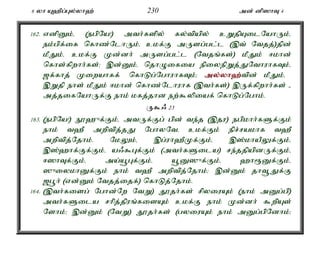 6 லா யுஹிப்புல்லாஹ் 230 அன் னிஸாவு 4
162. எனினும், (நபியே) அவர்களில் கல்வியில் உறுதியுடையோரும்,
நம்பிக்கை கொண்டோரும், உமக்கு அருளப்பட்ட (இவ் வேதத்)தின்
மீதும், உமக்கு முன்னர் அருளப்பட்ட (வேதங்கள்) மீதும் ஈமான்
கொள்கிறார்கள்; இன்னும், தொழுகையை நிலைநிறுத்துவோராகவும்,
ஜக்காத் முறையாகக் கொடுப்போராகவும்; அல்லாஹ்வின் மீதும்,
இறுதி நாள் மீதும் ஈமான் கொண்டோராக (இவர்கள்) இருக்கிறார்கள் ,
அத்தகையோருக்கு நாம் மகத்தான நற்கூலியைக் கொடுப்போம்.
ருகூஃ 23
163. (நபியே) நூஹுக்கும், அவருக்குப் பின் வந்த (இதர) நபிமார்களுக்கும்
நாம் வஹீ அறிவித்தது போலவே, உமக்கும் நிச்சயமாக வஹீ
அறிவித்தோம். மேலும், இப்ராஹீமுக்கும், இஸ்மாயீலுக்கும்,
இஸ்ஹாக்குக்கும், யஃகூபுக்கும் (அவர்களுடைய) சந்ததியினருக்கும்,
ஈஸாவுக்கும், அய்யூபுக்கும், யூனுஸுக்கும், ஹாரூனுக்கும்,
ஸுலைமானுக்கும் நாம் வஹீ அறிவித்தோம்; இன்னும் தாவூதுக்கு
ஜபூர் (என்னும் வேதத்தைக்) கொடுத்தோம்.
164. (இவர்களைப் போன்றே வேறு) தூதர்கள் சிலரையும் (நாம் அனுப்பி)
அவர்களுடைய சரித்திரங்களையும் உமக்கு நாம் முன்னர் கூறியுள்
ளோம்; இன்னும் (வேறு) தூதர்கள் (பலரையும் நாம் அனுப்பினோம்;